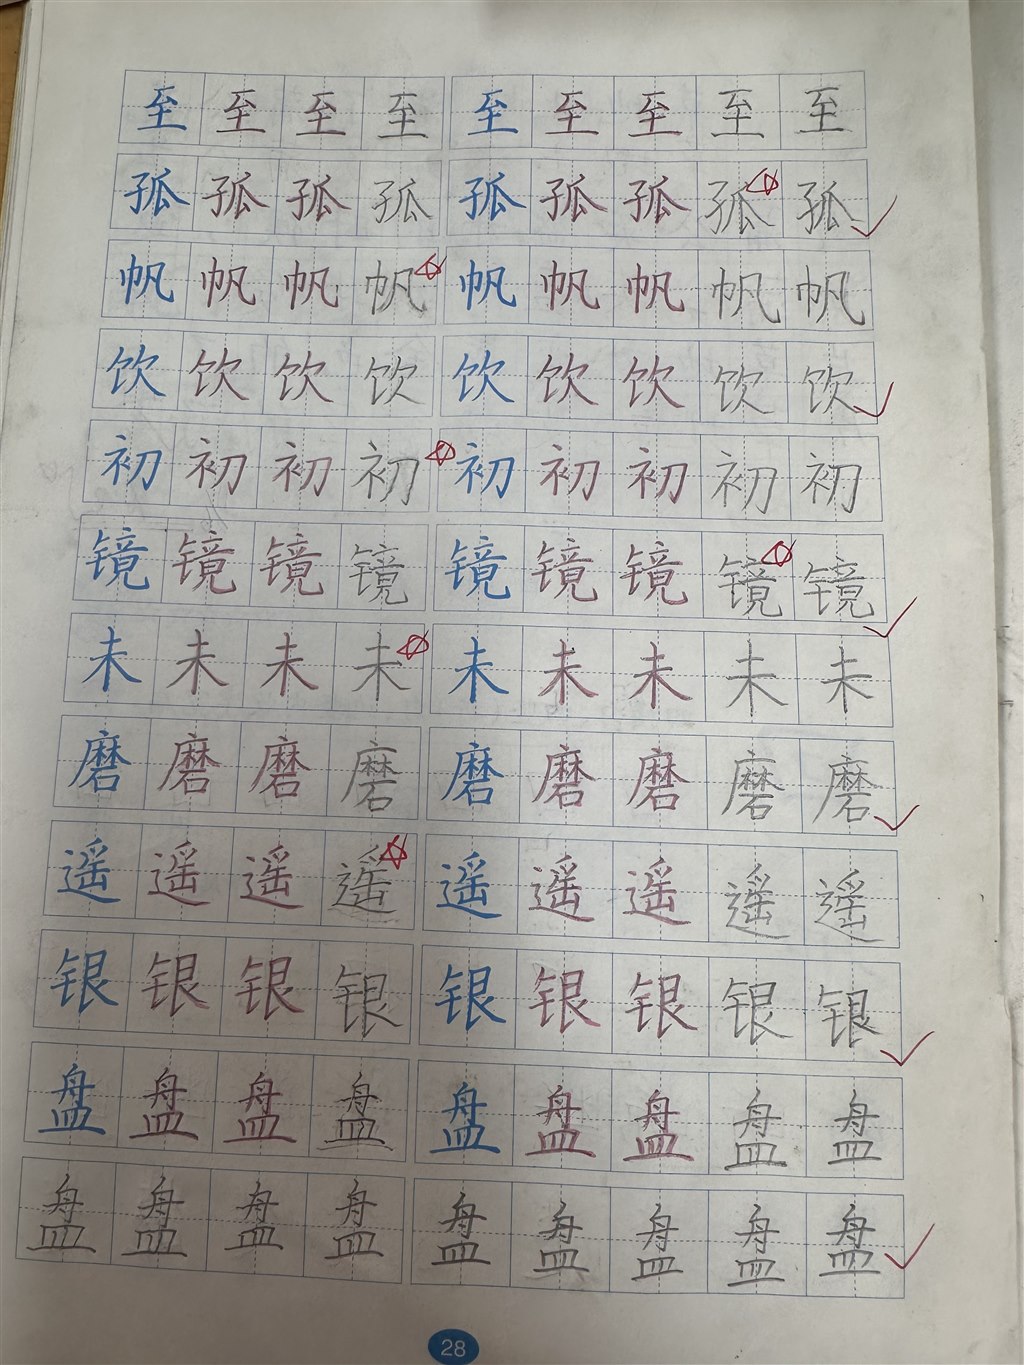 至至至至 至至至至至
孤孤孤孤 孤孤孤孤孤
帆帆帆帆 帆帆帆帆帆
饮饮饮饮 饮饮饮饮饮
初初初初 初初初初初
镜镜镜镜 镜镜镜镜镜
未未未未 未未未未未
磨磨磨磨 磨磨磨磨磨
遥遥遥遥 遥遥遥遥遥
银银银银 银银银银银
盘盘盘盘 盘盘盘盘盘
盘盘盘盘 盘盘盘盘盘
28